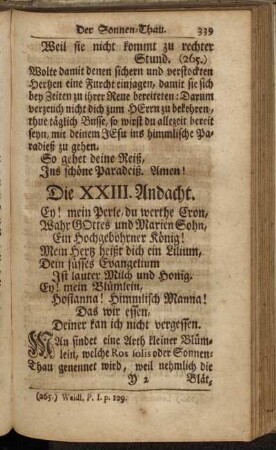 Der Sonnen-Thau. 339
Weil sie nicht kommt zu rechter
Stund. (265.)
Wolte damit denen sichern und verstockten
Hertzen eine Furcht einjagen, damit sie sich
bey Zeiten zu ihrer Reue bereiteten: Darum
verzeuch nicht dich zum HErrn zu bekehren,
thue täglich Busse, so wirst du allezeit bereit
seyn, mit deinem JEsu ins himmlische Pa-
radieß zu gehen.
So gehet deine Reiß,
Ins schöne Paradeiß. Amen!
Die XXIII. Andacht.
Ey! mein Perle, du werthe Cron,
Wahr GOttes und Marien Sohn,
Ein Hochgebohrner König!
Mein Hertz heißt dich ein Lilium,
Dein süsses Evangelium
Ist lauter Milch und Honig.
Ey! mein Blümlein,
Hosianna! Himmlisch Manna!
Das wir essen,
Deiner kan ich nicht vergessen.
MAn findet eine Arth kleiner Blüm-
lein, welche Ros solis oder Sonnen-
Thau genennet wird, weil nehmlich die
Y 2 Blät,
(265.) Weidl. P. I. p. 129.